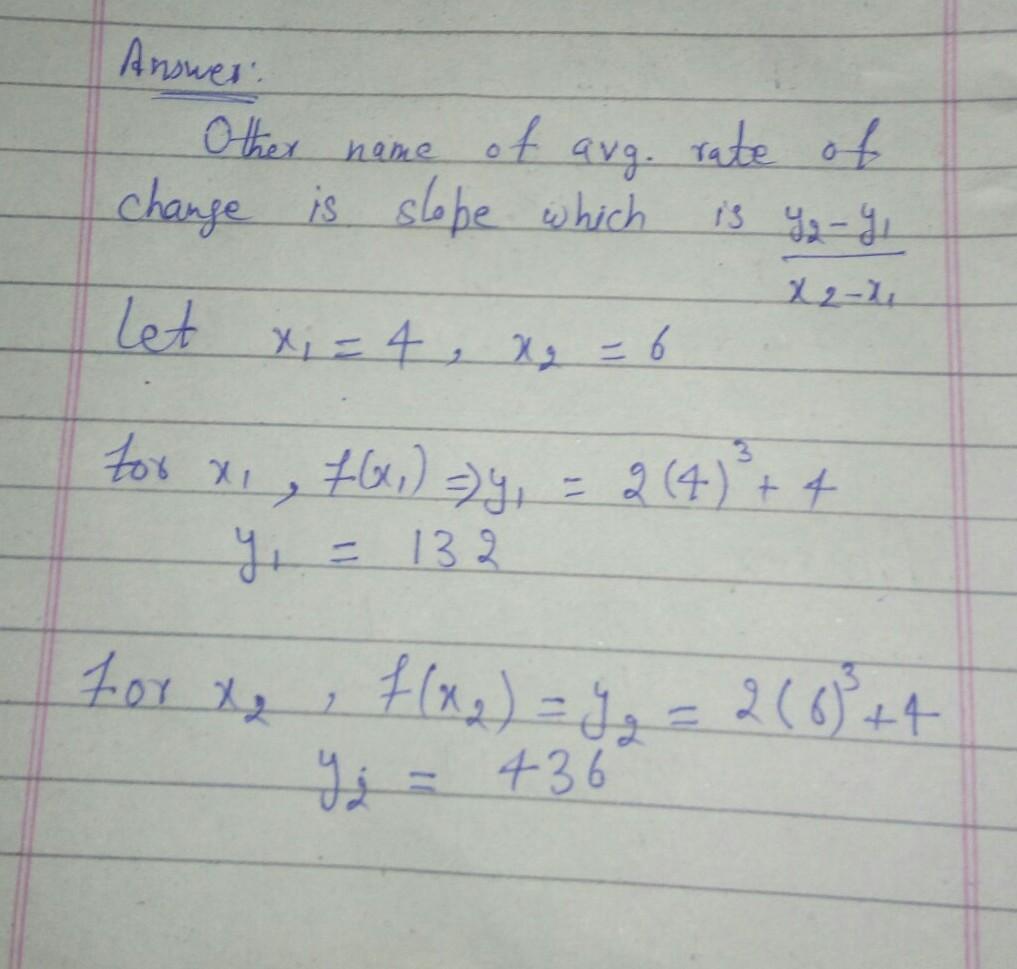 Answer:
Other name of avg. rate of
change is slope which is y₂-y₁
x₂-x₁
Let x₁ = 4, x₂ = 6
for x₁, f(x₁) ⇒ y₁ = 2(4)³ + 4
y₁ = 132
For x₂, f(x₂) = y₂ = 2(6)³+4
y₂ = 436